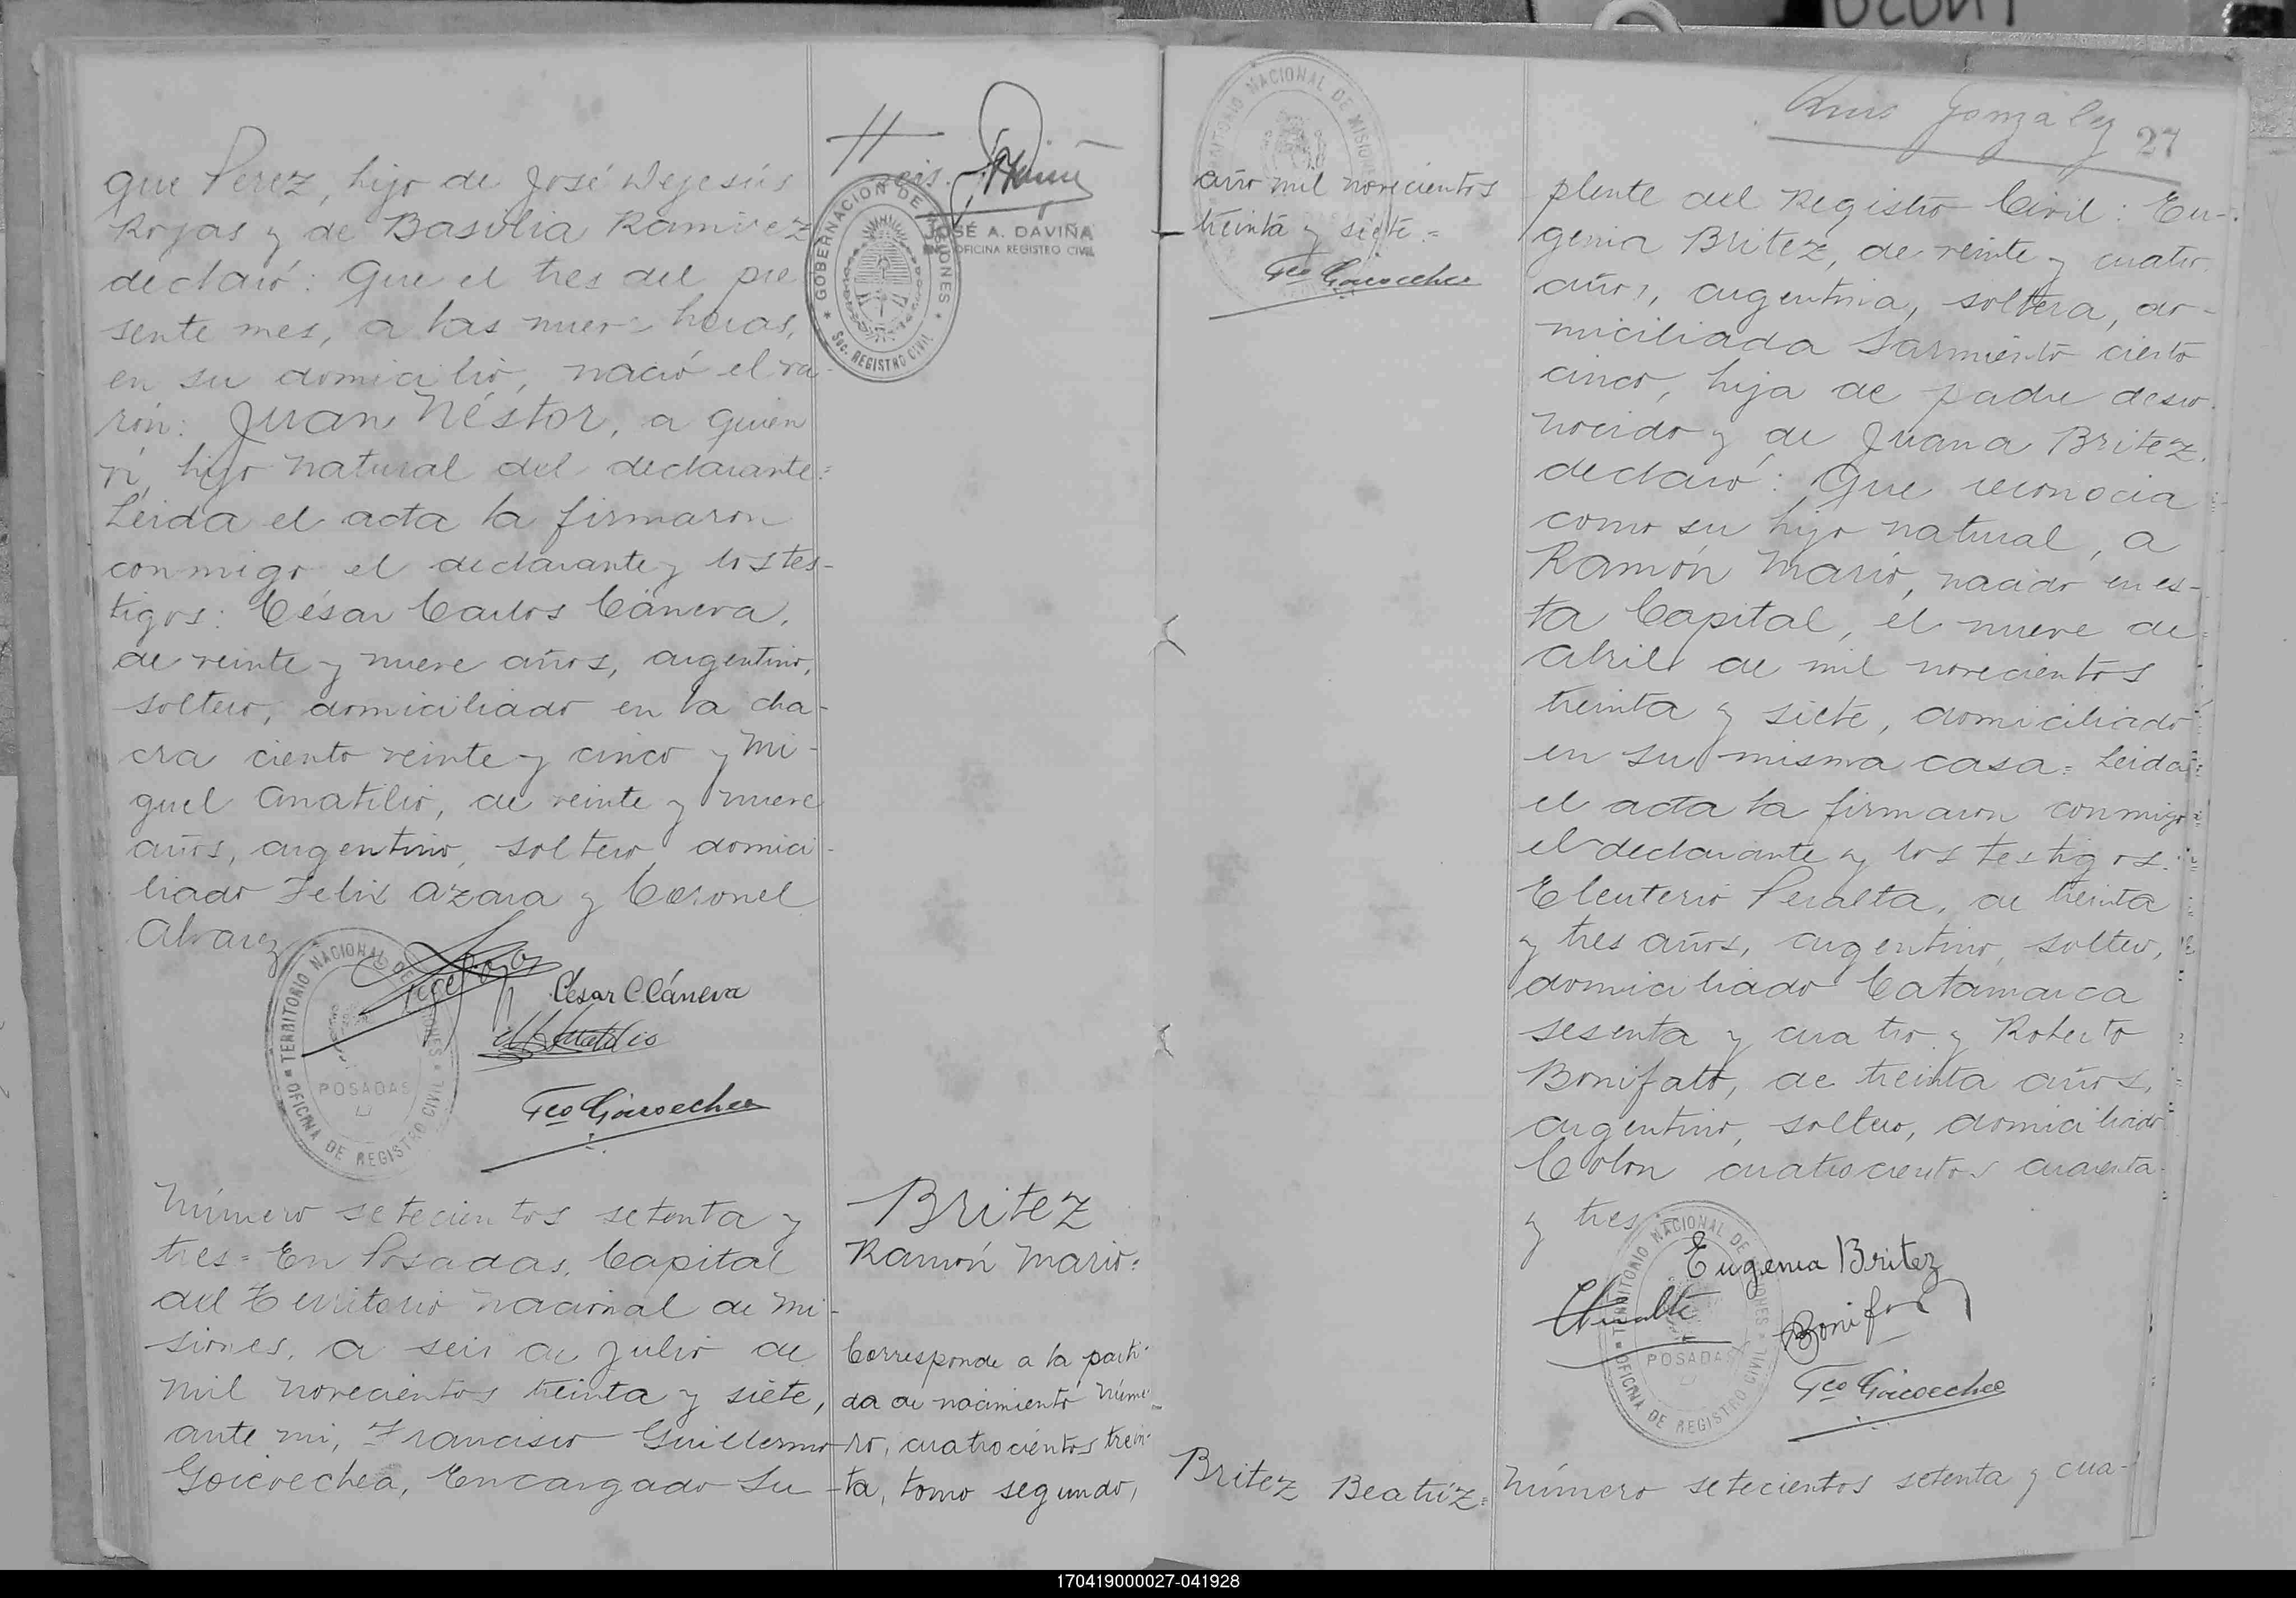 que Perez, hijo de José Dejesús
Rojas y de Basilia Ramirez
declaró: Que el tres del pre
sente mes, a las nueve horas,
en su domicilio, nació el va-
rón: Juan Néstor, a quien
vi, hijo natural del declarante=
Leida el acta la firmaron
conmigo el declarante y los tes-
tigos: César Carlos Cáneva,
de veinte y nueve años, argentino,
soltero, domiciliado en la cha-
cra ciento veinte y cinco y Mi-
guel Amatilio, de veinte y nueve
años, argentino, soltero, domici-
liado Felix Azara y Coronel
Alvarez
César C. Cáneva
Fco Goicoechea
TERRITORIO NACIONAL DE MISIONES
POSADAS
OFICINA DE REGISTRO CIVIL
Número setecientos setenta y
tres= En Posadas, Capital
del Territorio Nacional de Mi-
siones, a seis de Julio de
mil novecientos treinta y siete,
ante mi, Francisco Guillermo
Goicoechea, Encargado Su-
seis.
JOSÉ A. DAVIÑA
OFICINA REGISTRO CIVIL
GOBERNACION DE MISIONES
Sec. REGISTRO CIVIL
Britez
Ramón Mario=
Corresponde a la parti-
da de nacimiento núme-
ro, cuatrocientos trein-
ta, tomo segundo,
TERRITORIO NACIONAL DE MISIONES
año mil novecientos
treinta y siete=
Fco Goicoechea
Britez Beatriz=
Luis González
27
plente del Registro Civil: Eu-
genia Britez, de veinte y cuatro
años, argentina, soltera, do-
miciliada Sarmiento ciento
cinco, hija de padre desco-
nocido y de Juana Britez,
declaró: Que reconocia
como su hijo natural, a
Ramón Mario, nacido en es-
ta Capital, el nueve de
Abril de mil novecientos
treinta y siete, domiciliado
en su misma casa= Leida
el acta la firmaron conmigo
el declarante y los testigos:
Eleuterio Peralta, de treinta
y tres años, argentino, soltero,
domiciliado Catamarca
sesenta y cuatro y Roberto
Bonifato, de treinta años,
argentino, soltero, domiciliado
Colon cuatrocientos cuarenta
y tres
Eugenia Britez
Fco Goicoechea
TERRITORIO NACIONAL DE MISIONES
POSADAS
OFICINA DE REGISTRO CIVIL
Número setecientos setenta y cua-
170419000027-041928